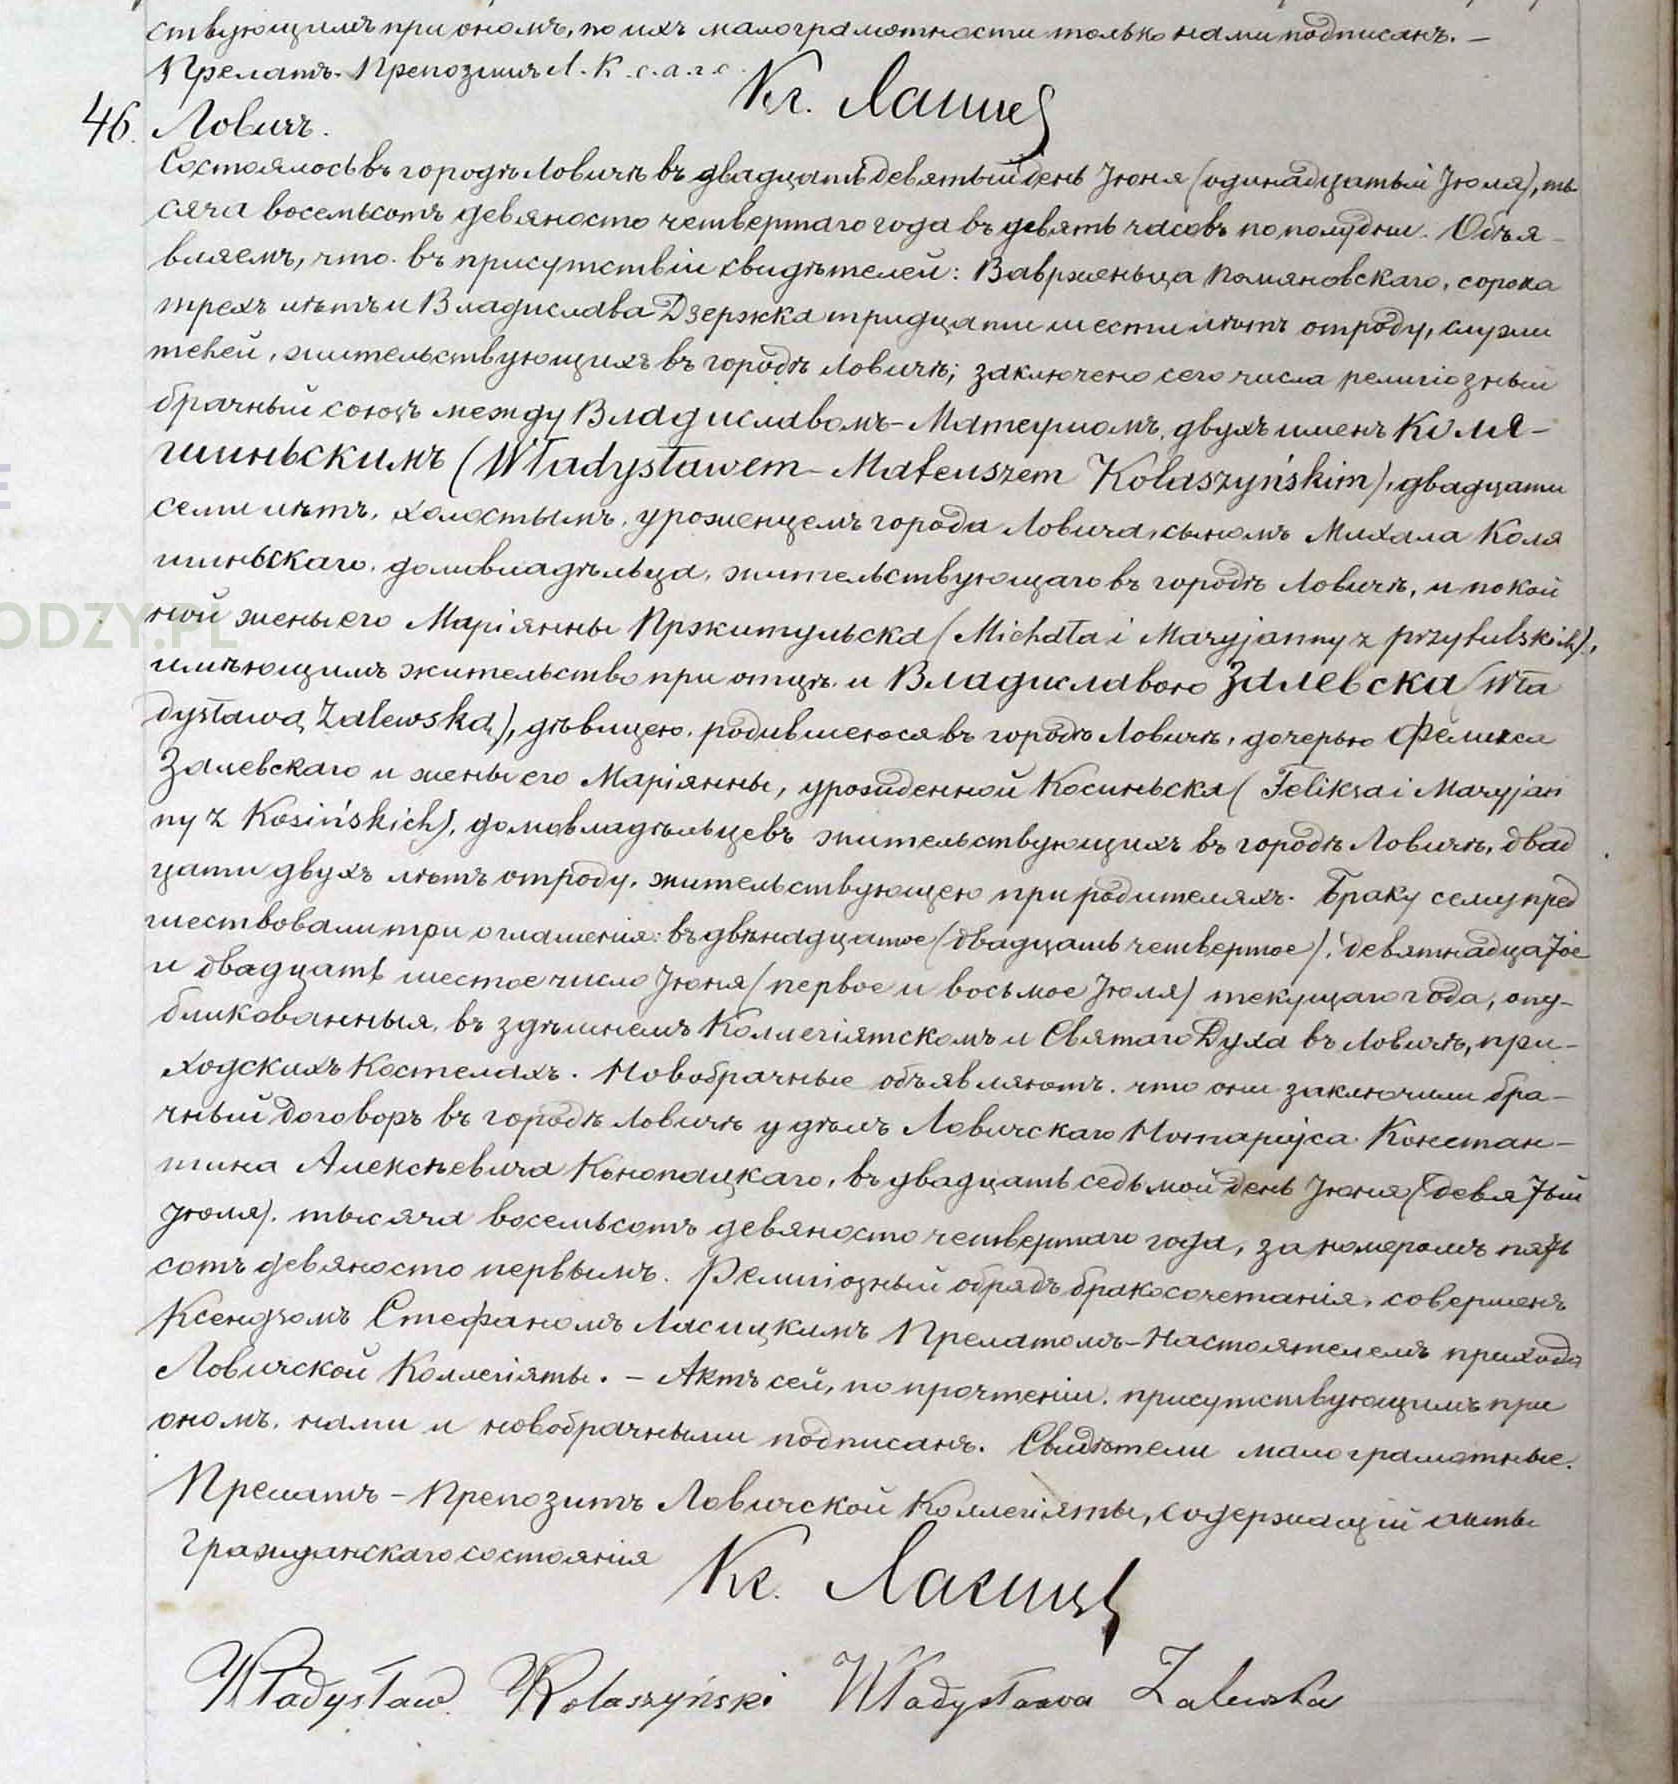 ствующимъ при ономъ, по ихъ малограмотности только нами подписанъ. —
Прелатъ-Препозитъ Л. К. с. а. г. с.
Кс. Ласиц
46. Ловичъ.
Состоялось въ городѣ Ловичѣ въ двадцать девятый день Іюня (одинадцатый Іюля), ты
сяча восемьсотъ девяносто четвертаго года въ девять часовъ по полудни. Объя-
вляемъ, что въ присутствіи свидѣтелей: Ваврженьца Помяновскаго, сорока
трехъ лѣтъ и Владислава Дзержка тридцати шести лѣтъ отроду, служи
телей, жительствующихъ въ городѣ Ловичѣ; заключено сего числа религіозный
брачный союзъ между Владиславомъ-Матеушомъ, двухъ именъ Коля-
шиньскимъ (Władysławem-Mateuszem Kołaszyńskim), двадцати
семи лѣтъ, холостымъ, уроженцемъ города Ловича, сыномъ Михала Коля
шиньскаго, домовладѣльца, жительствующаго въ городѣ Ловичѣ, и покой
ной жены его Маріянны Пржитульска (Michała i Maryjanny z Przytulskich),
имѣющимъ жительство при отцѣ и Владиславою Залевска (Wła
dysławą Zalewską), дѣвицею, родившеюся въ городѣ Ловичѣ, дочерью Феликса
Залевскаго и жены его Маріянны, урожденной Косиньска (Feliksa i Maryjan
ny z Kosińskich), домовладѣльцевъ жительствующихъ въ городѣ Ловичѣ, двад
цати двухъ лѣтъ отроду, жительствующею при родителяхъ. Браку сему пред
шествовали три оглашенія: въ двѣнадцатое (двадцать четвертое), девятнадцатое
и двадцать шестое число Іюня (первое и восьмое Іюля) текущаго года, опу-
бликованныя, въ здѣшнемъ Коллегіятскомъ и Святаго Духа въ Ловичѣ, при-
ходскихъ Костелахъ. Новобрачные объявляютъ, что они заключили бра-
чный договоръ въ городѣ Ловичѣ у дѣлъ Ловичскаго Нотаріуса Констан-
тина Алексѣевича Конопацкаго, въ двадцать седьмой день Іюня (девятый
Іюля), тысяча восемьсотъ девяносто четвертаго года, за номеромъ пять
сотъ девяносто первымъ. Религіозный обрядъ бракосочетанія, совершенъ
Ксендзомъ Стефаномъ Ласицкимъ Прелатомъ-Настоятелемъ прихода
Ловичской Коллегіяты. — Актъ сей, по прочтеніи, присутствующимъ при
ономъ, нами и новобрачными подписанъ. Свидѣтели малограмотные.
Прелатъ-Препозитъ Ловичской Коллегіяты, Содержащій акты
гражданскаго состоянія
Кс. Ласицк
Władysław Kolaszyński Władysława Zalewska
ODZY.PL